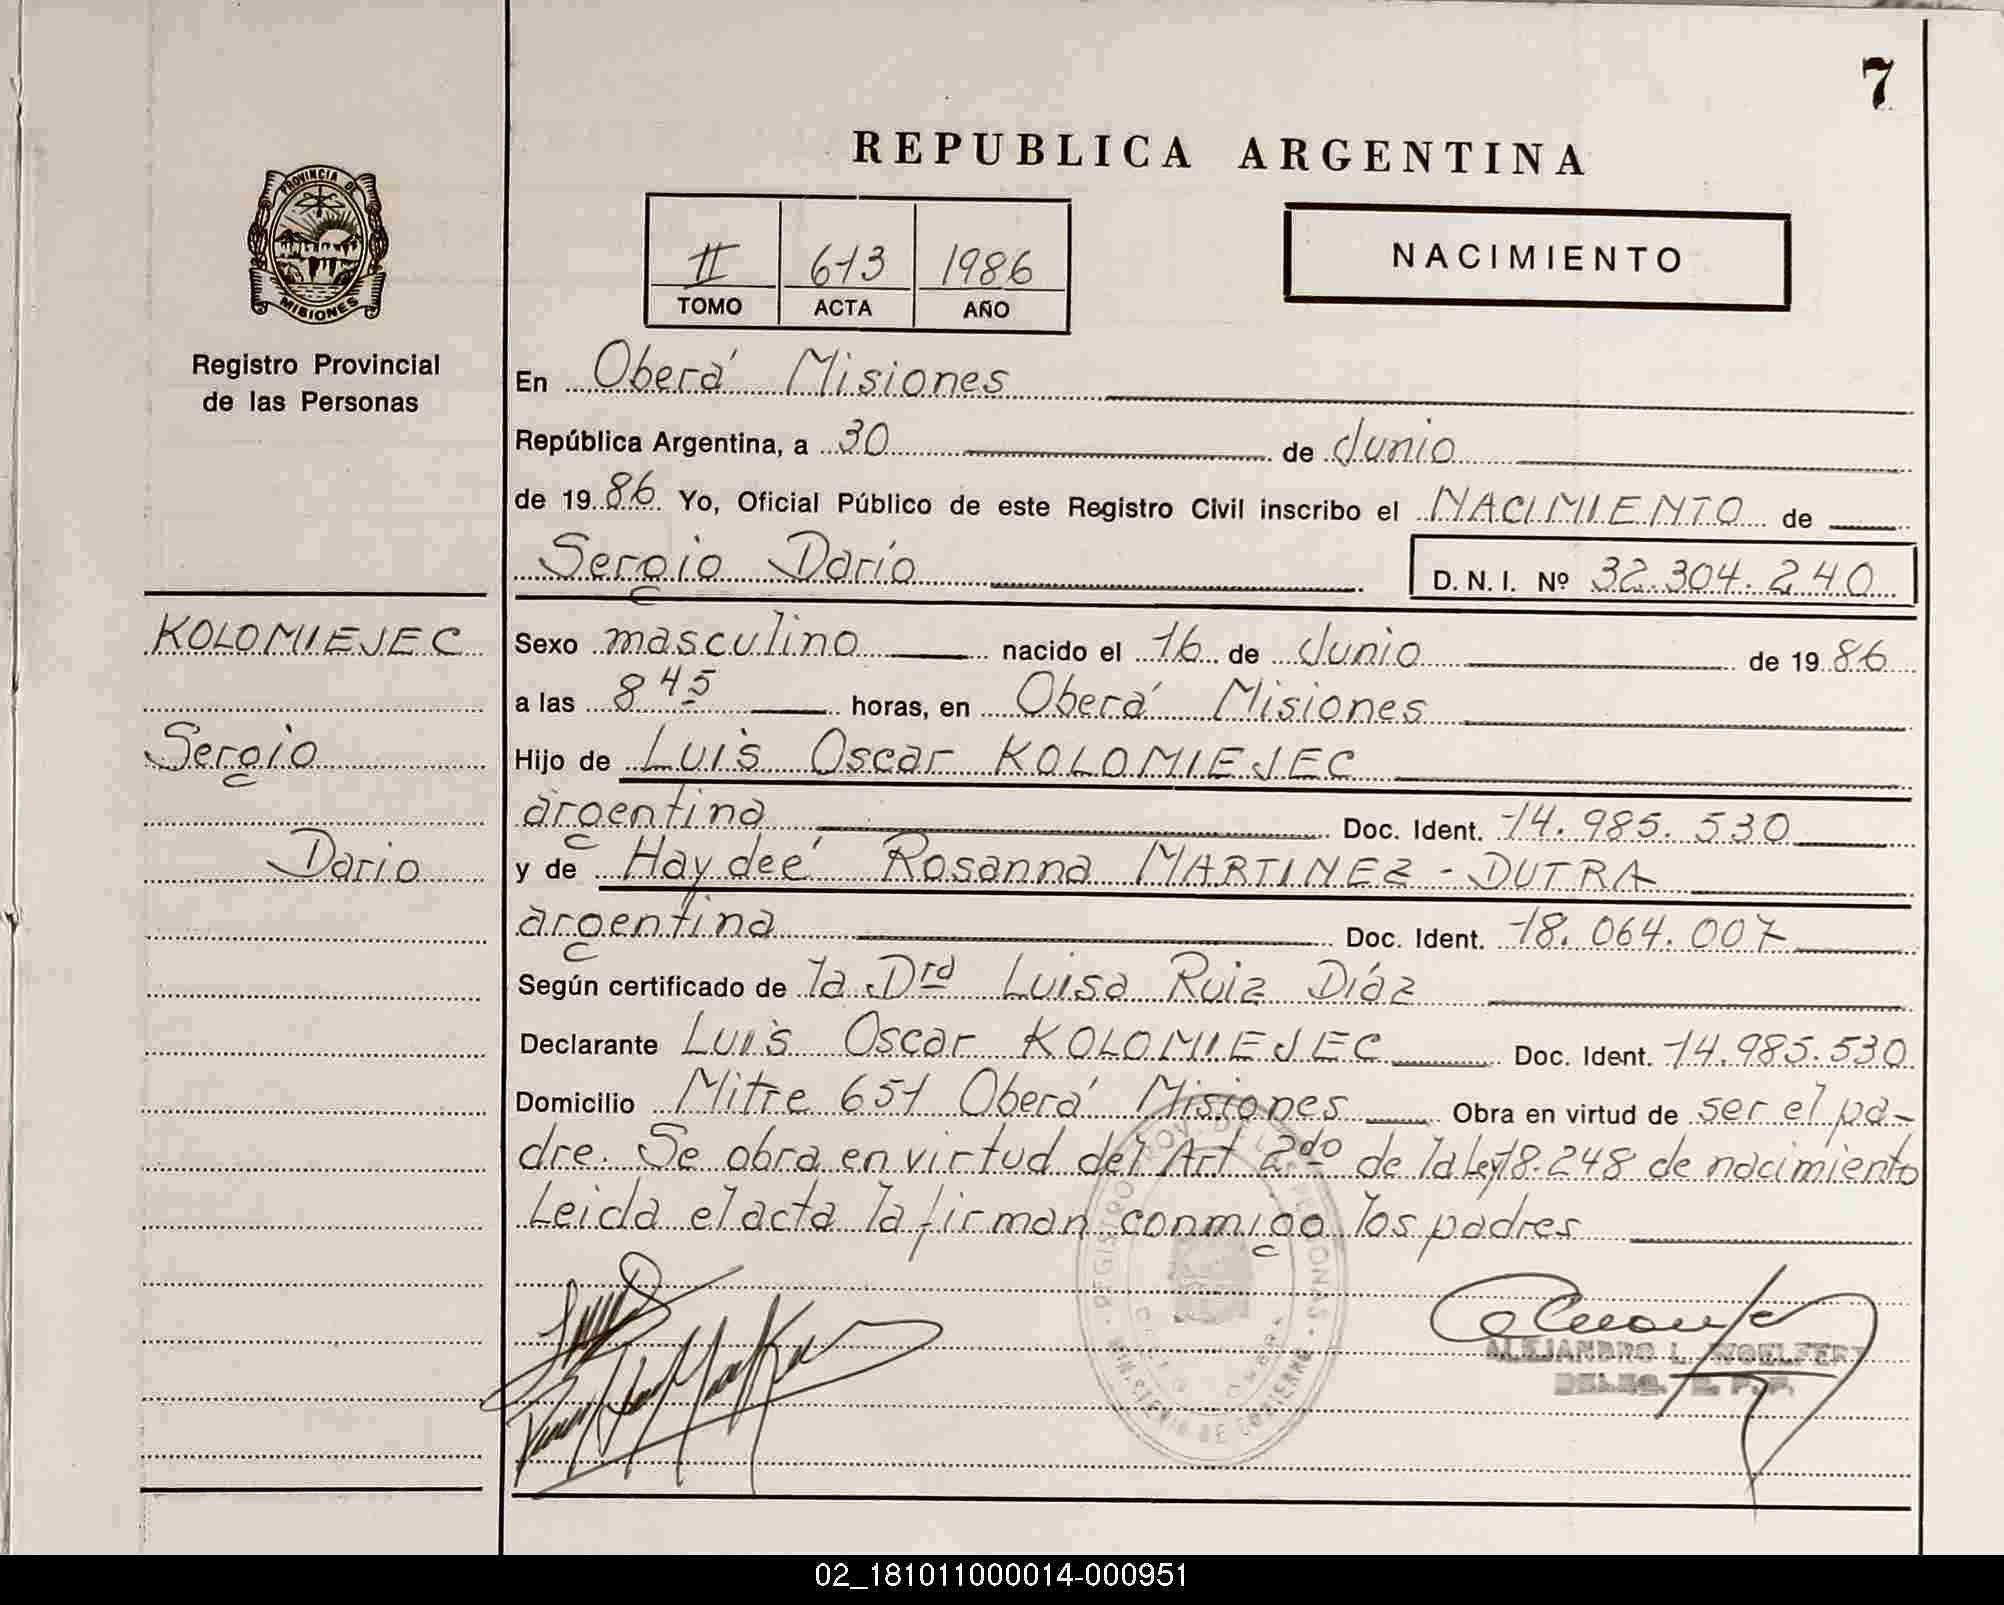 7
REPUBLICA ARGENTINA
PROVINCIA DE
MISIONES
II 613 1986
TOMO ACTA AÑO
NACIMIENTO
Registro Provincial
de las Personas
En Oberá Misiones
República Argentina, a 30 de Junio
de 19 86 Yo, Oficial Público de este Registro Civil inscribo el NACIMIENTO de
Sergio Darío D.N.I. Nº 32.304.240
KOLOMIEJEC
Sergio
Dario
Sexo masculino nacido el 16 de Junio de 19 86
a las 8 45 horas, en Oberá Misiones
Hijo de Luis Oscar KOLOMIEJEC
argentina Doc. Ident. 14.985.530
y de Haydeé Rosanna MARTINEZ - DUTRA
argentina Doc. Ident. 18.064.007
Según certificado de la Dra Luisa Ruiz Díaz
Declarante Luis Oscar KOLOMIEJEC Doc. Ident. 14.985.530
Domicilio Mitre 651 Oberá Misiones Obra en virtud de ser el pa-
dre. Se obra en virtud del Art 2do de la Ley 18.248 de nacimiento
Leida el acta la firman conmigo los padres
ALEJANDRO L. WOELFERT
MINISTERIO DE GOBIERNO
02_181011000014-000951